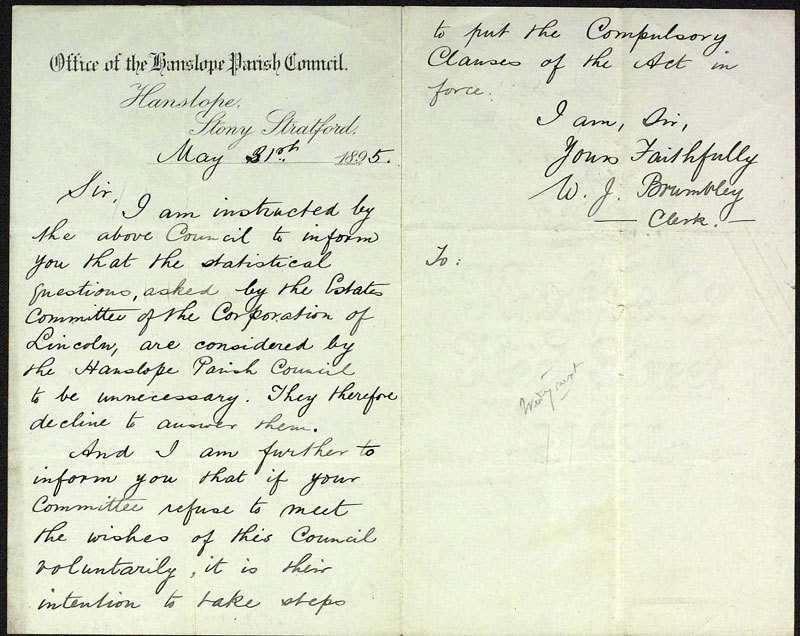 Office of the Hanslope Parish Council.
Hanslope,
Stony Stratford.
May 31st. 1895.
Sir,
I am instructed by
the above Council to inform
you that the statistical
questions, asked by the Estates
Committee of the Corporation of
Lincoln, are considered by
the Hanslope Parish Council
to be unnecessary. They therefore
decline to answer them.
And I am further to
inform you that if your
Committee refuse to meet
the wishes of this Council
voluntarily, it is their
intention to take steps
to put the Compulsory
Clauses of the Act in
force.
I am, Sir,
Yours Faithfully
W. J. Brumbley
— Clerk. —
To: